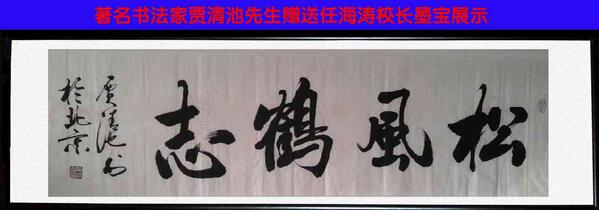 著名书法家贾清池先生赠送任海涛校长墨宝展示
松風鶴志
贾清池书
於北京